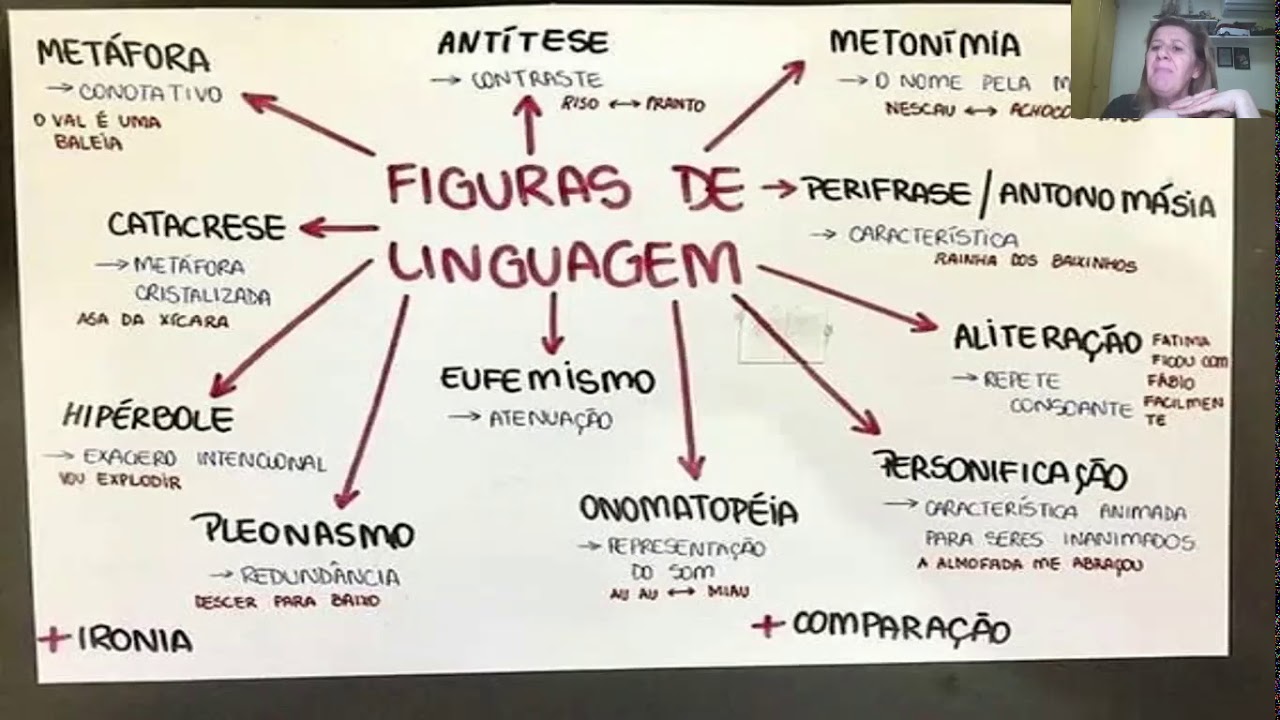 METÁFORA
→ CONOTATIVO
O VAL É UMA
BALEIA
ANTÍTESE
→ CONTRASTE
RISO ↔ PRANTO
METONÍMIA
→ O NOME PELA
NESCAU ↔
FIGURAS DE
LINGUAGEM
PERIFRASE / ANTONOMÁSIA
→ CARACTERÍSTICA
RAINHA DOS BAIXINHOS
CATACRESE
→ METÁFORA
CRISTALIZADA
ASA DA XÍCARA
ALITERAÇÃO
→ REPETE
CONSOANTE
FATIMA
FICOU COM
FÁBIO
FACILMEN
TE
EUFEMISMO
→ ATENUAÇÃO
HIPÉRBOLE
→ EXAGERO INTENCIONAL
VOU EXPLODIR
PERSONIFICAÇÃO
→ CARACTERÍSTICA ANIMADA
PARA SERES INANIMADOS
A ALMOFADA ME ABRAÇOU
PLEONASMO
→ REDUNDÂNCIA
DESCER PARA BAIXO
ONOMATOPÉIA
→ REPRESENTAÇÃO
DO SOM
AU AU ↔ MIAU
+ IRONIA
+ COMPARAÇÃO